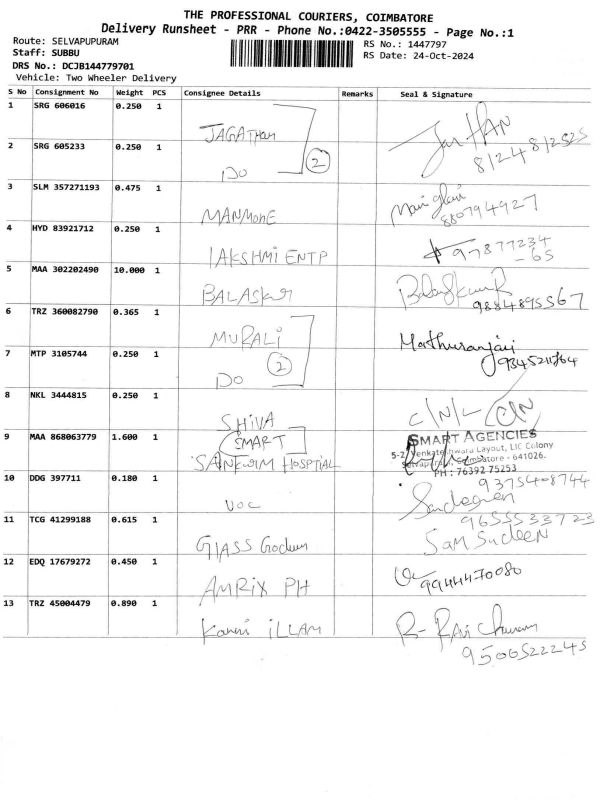 THE PROFESSIONAL COURIERS, COIMBATORE
Delivery Runsheet - PRR - Phone No.:0422-3505555 - Page No.:1
Route: SELVAPUPURAM
RS No.: 1447797
Staff: SUBBU
RS Date: 24-Oct-2024
DRS No.: DCJB144779701
Vehicle: Two Wheeler Delivery
S No Consignment No Weight PCS Consignee Details Remarks Seal & Signature
1 SRG 606016 0.250 1
JAGATHAM
2 SRG 605233 0.250 1
DO 2
8124812525
3 SLM 357271193 0.475 1
MANMONE
880794927
4 HYD 83921712 0.250 1
LAKSHMI ENTP
97877234
-65
5 MAA 302202490 10.000 1
BALASKAR
9884895567
6 TRZ 360082790 0.365 1
MURALI
Mathuranjavi
7 MTP 3105744 0.250 1
DO 2
8 NKL 3444815 0.250 1
SHIVA
C/N/L C/N
9 MAA 868063779 1.600 1
SMART
SMART AGENCIES
Venkateshwara Layout, LIC Colony
Selvapuram, Coimbatore - 641026.
PH : 76392 75253
SANKARM HOSPTIAL
10 DDG 397711 0.180 1
9375408744
VOC
11 TCG 41299188 0.615 1
9655533723
SAM SUDEEN
GLASS Godwn
12 EDQ 17679272 0.450 1
AMRIX PH
9944470080
13 TRZ 45004479 0.890 1
ILLAM
9506522245